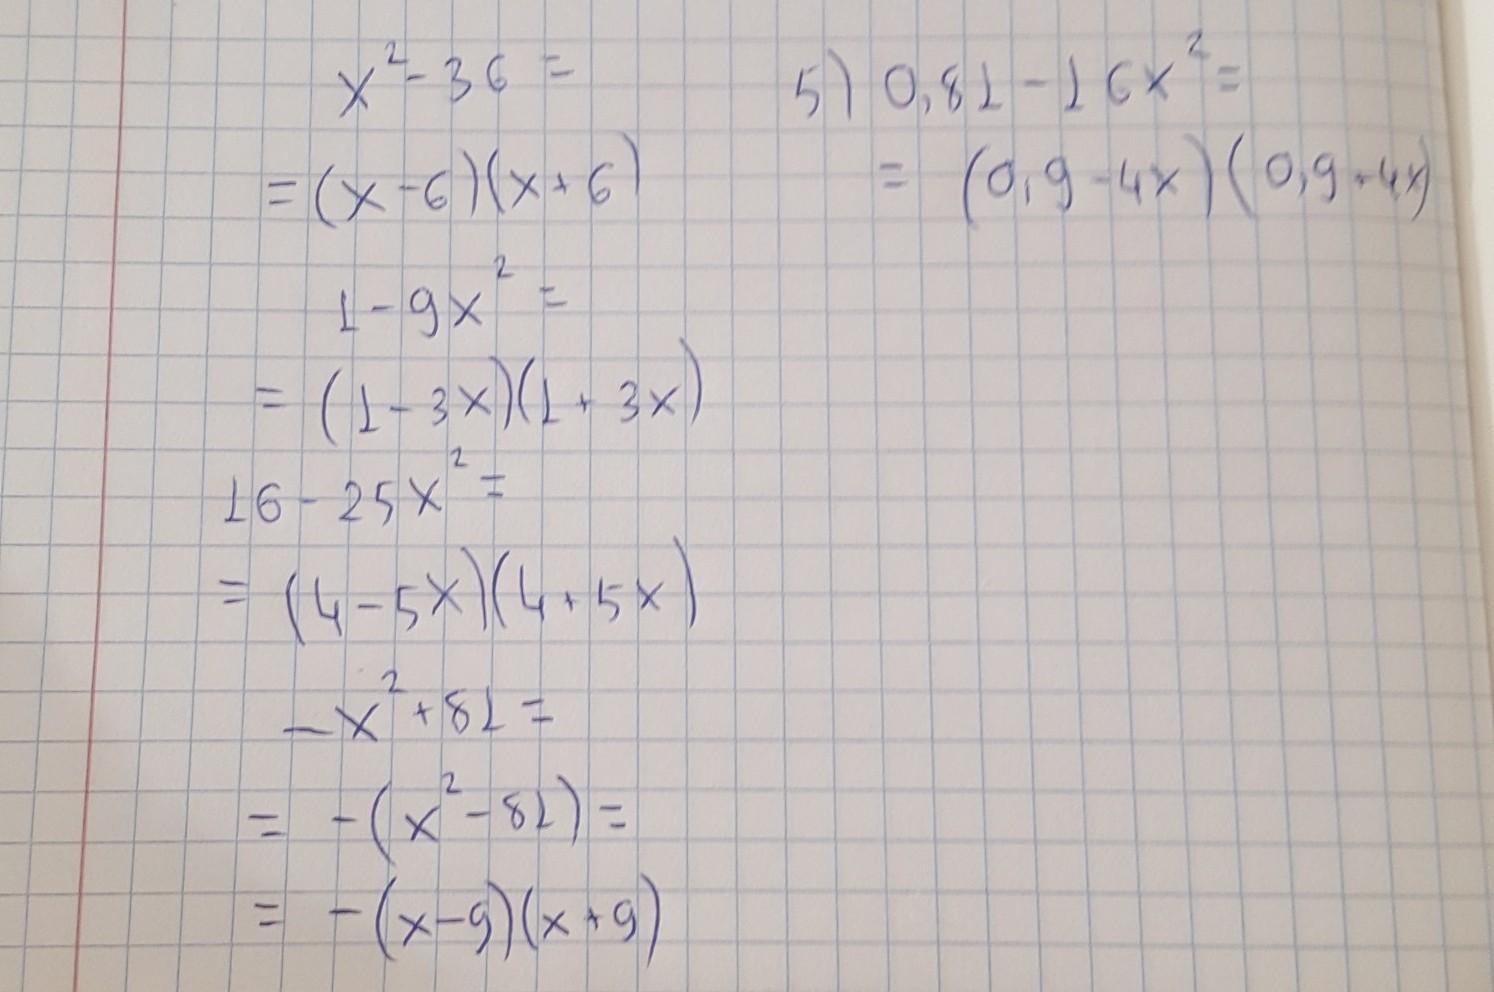 x² - 36 =
= (x - 6)(x + 6)
1 - 9x² =
= (1 - 3x)(1 + 3x)
16 - 25x² =
= (4 - 5x)(4 + 5x)
-x² + 81 =
= -(x² - 81) =
= -(x - 9)(x + 9)
5) 0,81 - 16x² =
= (0,9 - 4x)(0,9 + 4x)